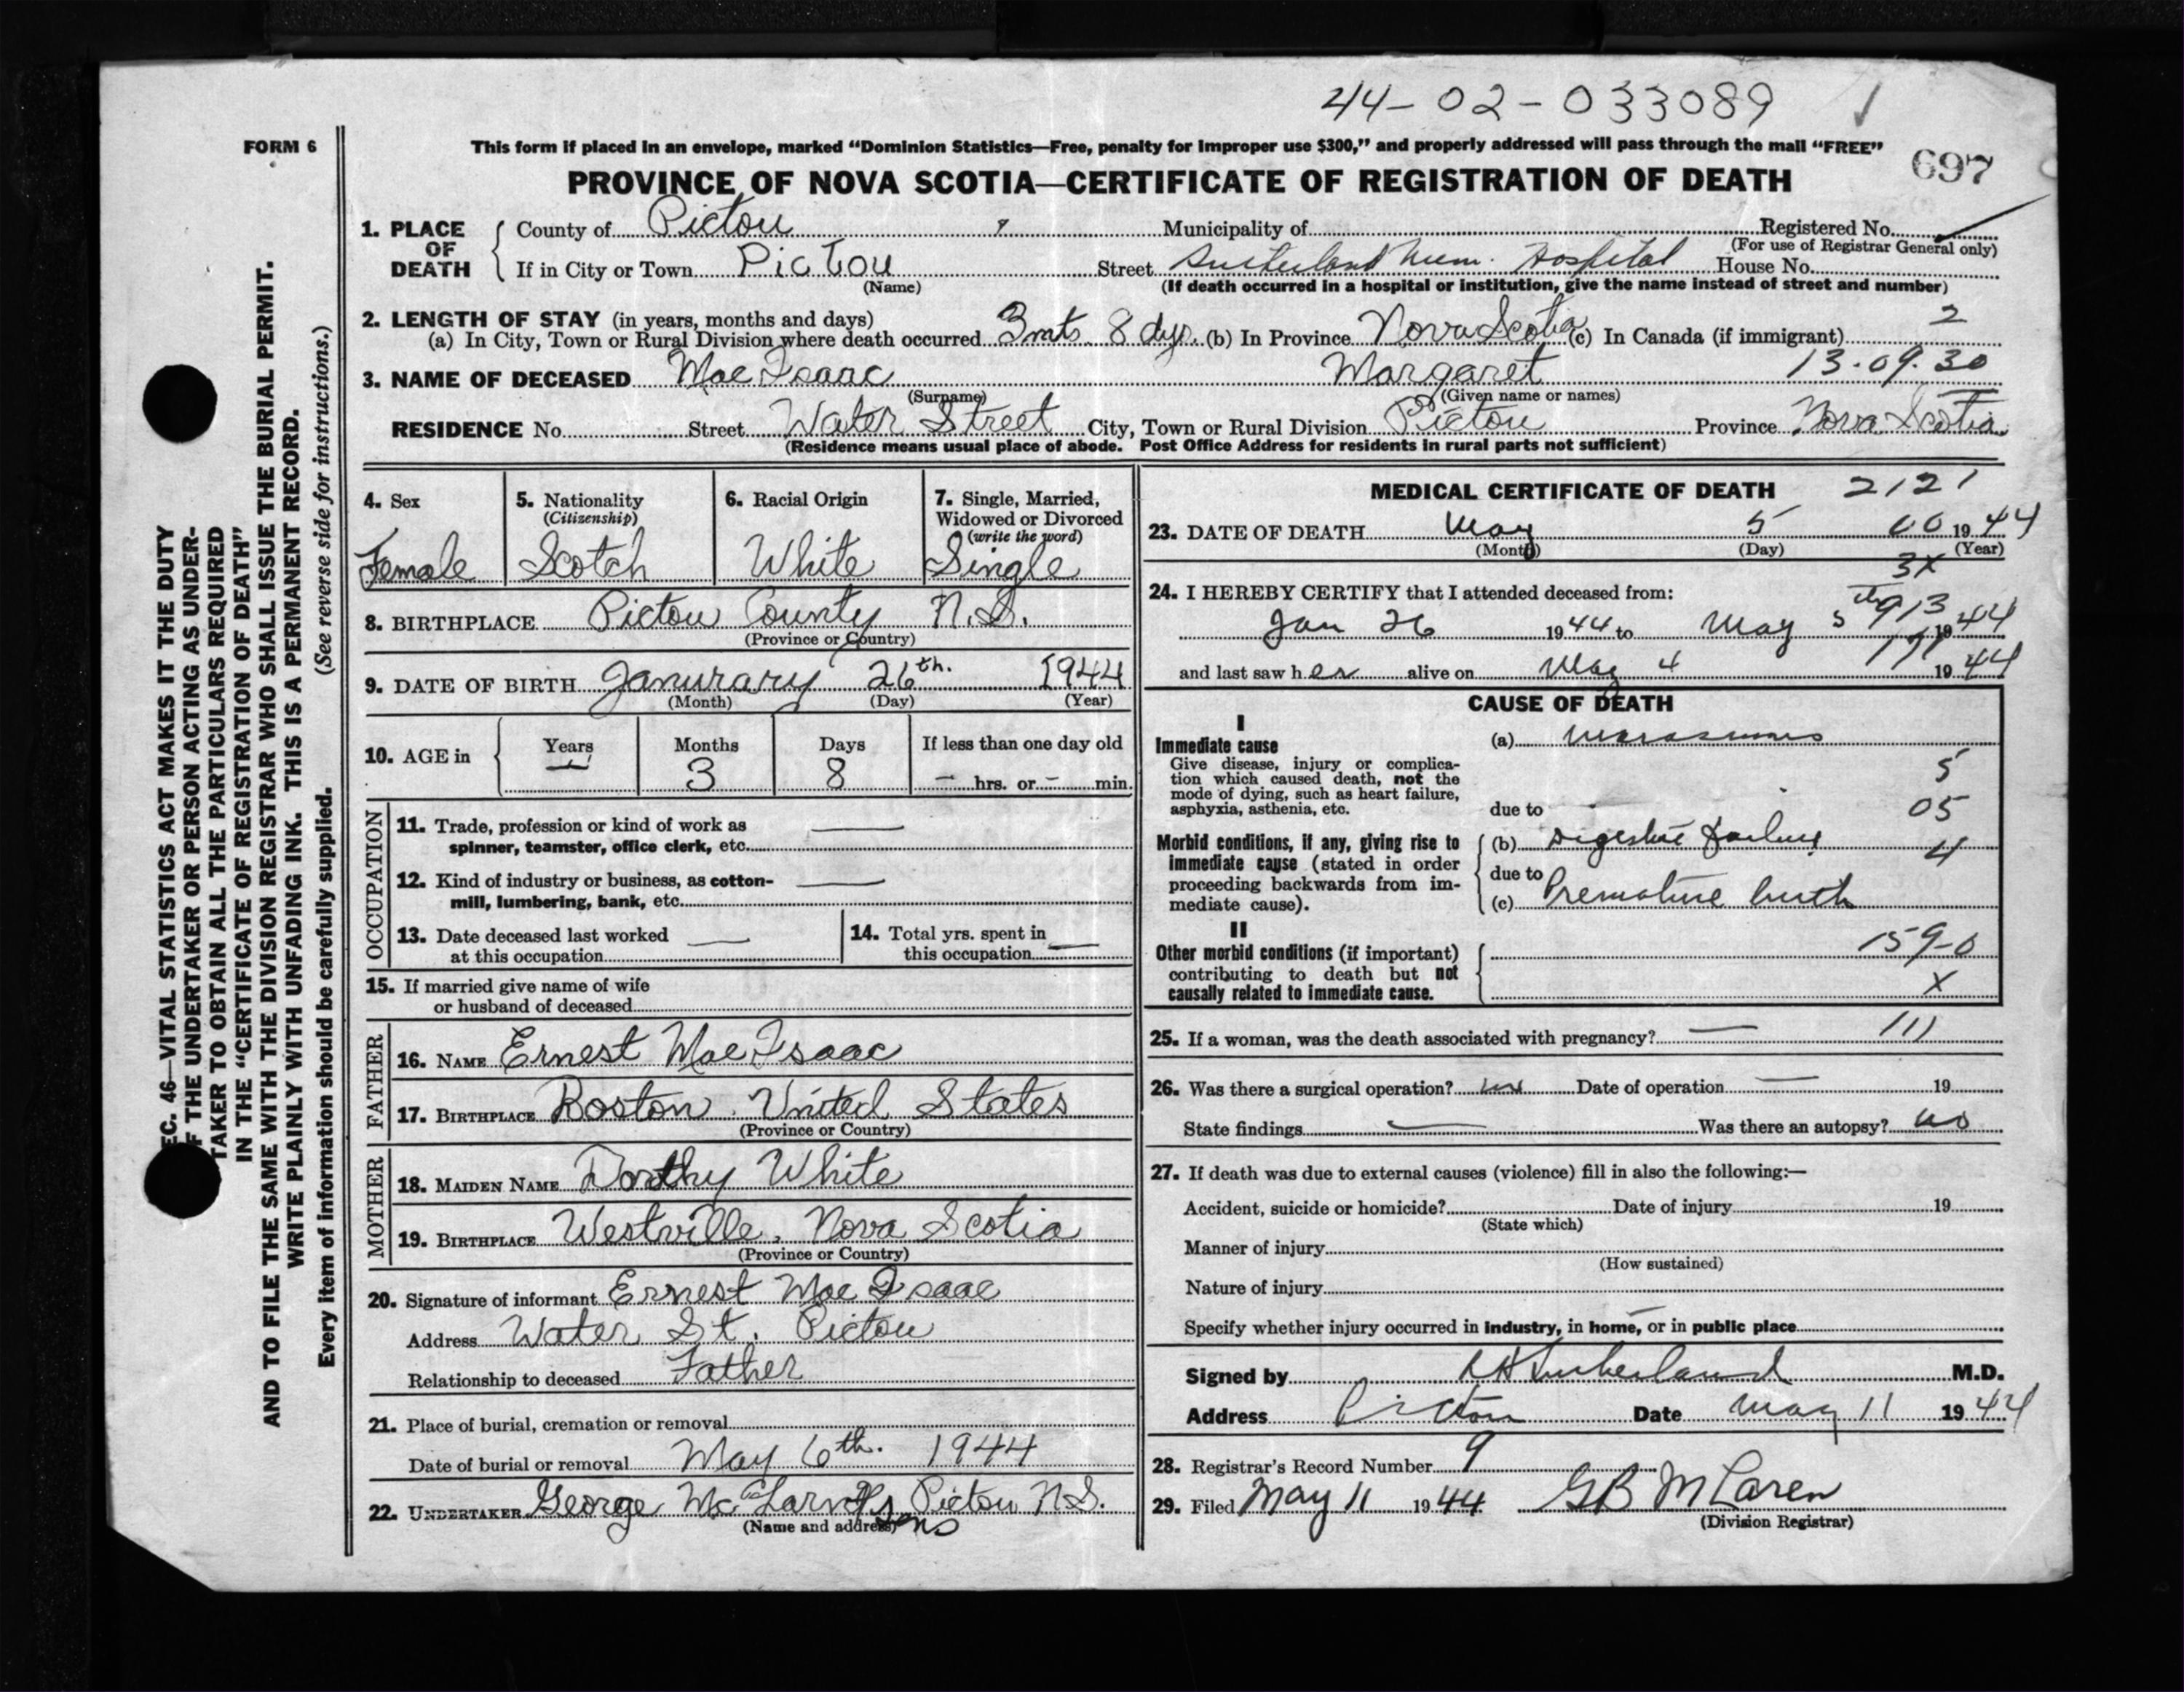 44-02-033089
FORM 6
This form if placed in an envelope, marked “Dominion Statistics—Free, penalty for improper use $300,” and properly addressed will pass through the mail “FREE”
697
PROVINCE OF NOVA SCOTIA—CERTIFICATE OF REGISTRATION OF DEATH
1. PLACE OF DEATH
County of Pictou Municipality of Registered No.
(For use of Registrar General only)
If in City or Town Pictou Street Sutherland Mem. Hospital House No.
(Name) (If death occurred in a hospital or institution, give the name instead of street and number)
2. LENGTH OF STAY (in years, months and days) 2
(a) In City, Town or Rural Division where death occurred 3 mts 8 dys. (b) In Province Nova Scotia (c) In Canada (if immigrant)
3. NAME OF DECEASED MacIsaac Margaret 13.09.30
(Surname) (Given name or names)
RESIDENCE No. Street Water Street City, Town or Rural Division Pictou Province Nova Scotia
(Residence means usual place of abode. Post Office Address for residents in rural parts not sufficient)
4. Sex
Female
5. Nationality
(Citizenship)
Scotch
6. Racial Origin
White
7. Single, Married,
Widowed or Divorced
(write the word)
Single
8. BIRTHPLACE Pictou County N.S.
(Province or Country)
9. DATE OF BIRTH Janurary 26th. 1944
(Month) (Day) (Year)
10. AGE in
Years Months Days If less than one day old
— 3 8 — hrs. or — min.
OCCUPATION
11. Trade, profession or kind of work as
spinner, teamster, office clerk, etc.
12. Kind of industry or business, as cotton-
mill, lumbering, bank, etc.
13. Date deceased last worked
at this occupation
14. Total yrs. spent in
this occupation
15. If married give name of wife
or husband of deceased
FATHER
16. NAME Ernest MacIsaac
17. BIRTHPLACE Boston. United States
(Province or Country)
MOTHER
18. MAIDEN NAME Dorthy White
19. BIRTHPLACE Westville, Nova Scotia
(Province or Country)
20. Signature of informant Ernest MacIsaac
Address Water St. Pictou
Relationship to deceased Father
21. Place of burial, cremation or removal
Date of burial or removal May 6th. 1944
22. UNDERTAKER George Pictou N.S.
(Name and address) Sons
MEDICAL CERTIFICATE OF DEATH 2121
23. DATE OF DEATH May 5 1944
(Month) (Day) (Year)
3X
24. I HEREBY CERTIFY that I attended deceased from:
913
Jan 26 1944 to May 5th 1944
and last saw her alive on May 4 1944
CAUSE OF DEATH
I
Immediate cause
Give disease, injury or complica-
tion which caused death, not the
mode of dying, such as heart failure,
asphyxia, asthenia, etc.
(a) Marasmus
5
due to 05
Morbid conditions, if any, giving rise to
immediate cause (stated in order
proceeding backwards from im-
mediate cause).
(b) Digestive failure 4
due to
(c) Premature birth
II
Other morbid conditions (if important)
contributing to death but not
causally related to immediate cause.
159-0
X
25. If a woman, was the death associated with pregnancy? — 111
26. Was there a surgical operation? no Date of operation — 19
State findings — Was there an autopsy? no
27. If death was due to external causes (violence) fill in also the following:—
Accident, suicide or homicide? Date of injury 19
(State which)
Manner of injury
(How sustained)
Nature of injury
Specify whether injury occurred in industry, in home, or in public place
Signed by Sutherland M.D.
Address Pictou Date May 11 1944
28. Registrar's Record Number 9
29. Filed May 11 1944 GB McLaren
(Division Registrar)
EC. 46—VITAL STATISTICS ACT MAKES IT THE DUTY
F THE UNDERTAKER OR PERSON ACTING AS UNDER-
TAKER TO OBTAIN ALL THE PARTICULARS REQUIRED
IN THE “CERTIFICATE OF REGISTRATION OF DEATH”
AND TO FILE THE SAME WITH THE DIVISION REGISTRAR WHO SHALL ISSUE THE BURIAL PERMIT.
WRITE PLAINLY WITH UNFADING INK. THIS IS A PERMANENT RECORD.
Every item of information should be carefully supplied. (See reverse side for instructions.)